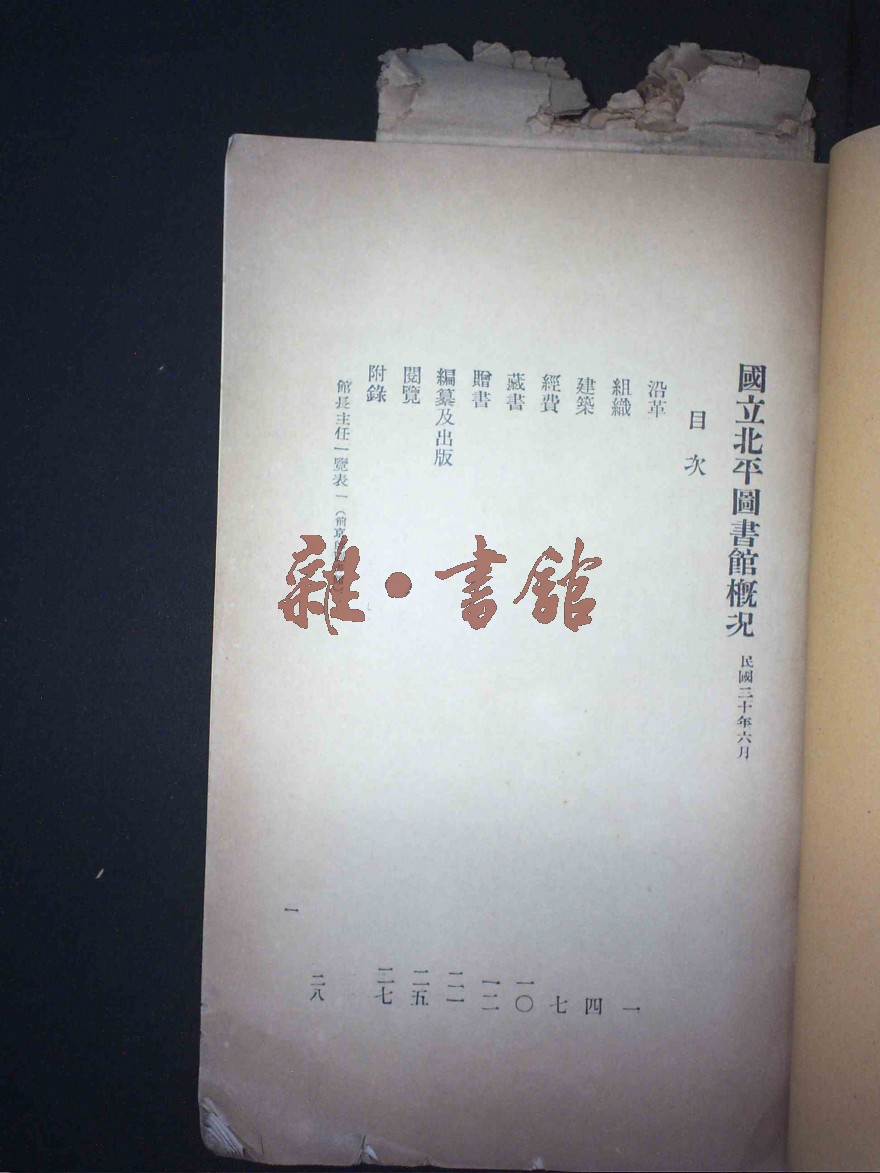 國立北平圖書館槪况 民國二十年六月
目次
沿革 一
組織 四
建築 七
經費 一〇
藏書 一二
贈書 二一
編纂及出版 二五
閱覽 二七
附錄
館長主任一覽表一（前京 二八
一
雜·書館